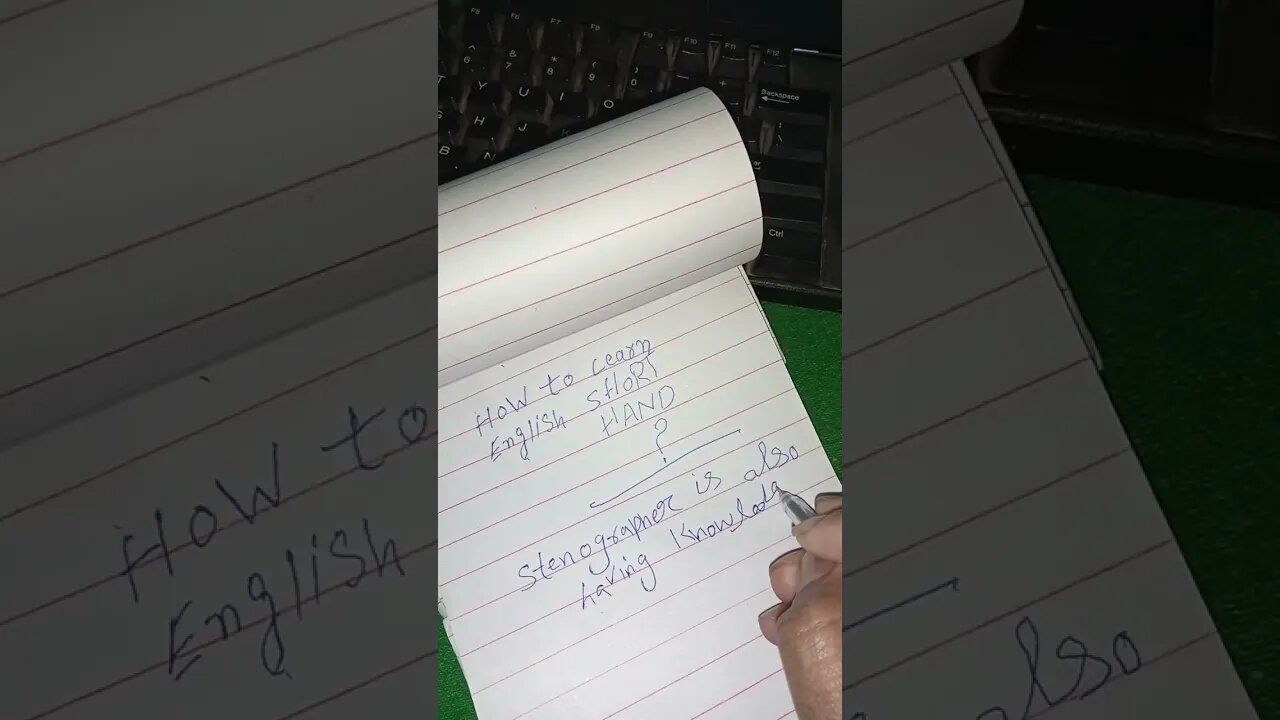 How to learn
English SHORT
HAND
?
Stenographer is also
having knowledg
F5 F6 F7 F8 F9 F10 F11 F12
^ 6 & 7 * 8 ( 9 ) 0 - +
T Y U I O
Backspace
G H J K
B N
Ctrl
How to
English
also